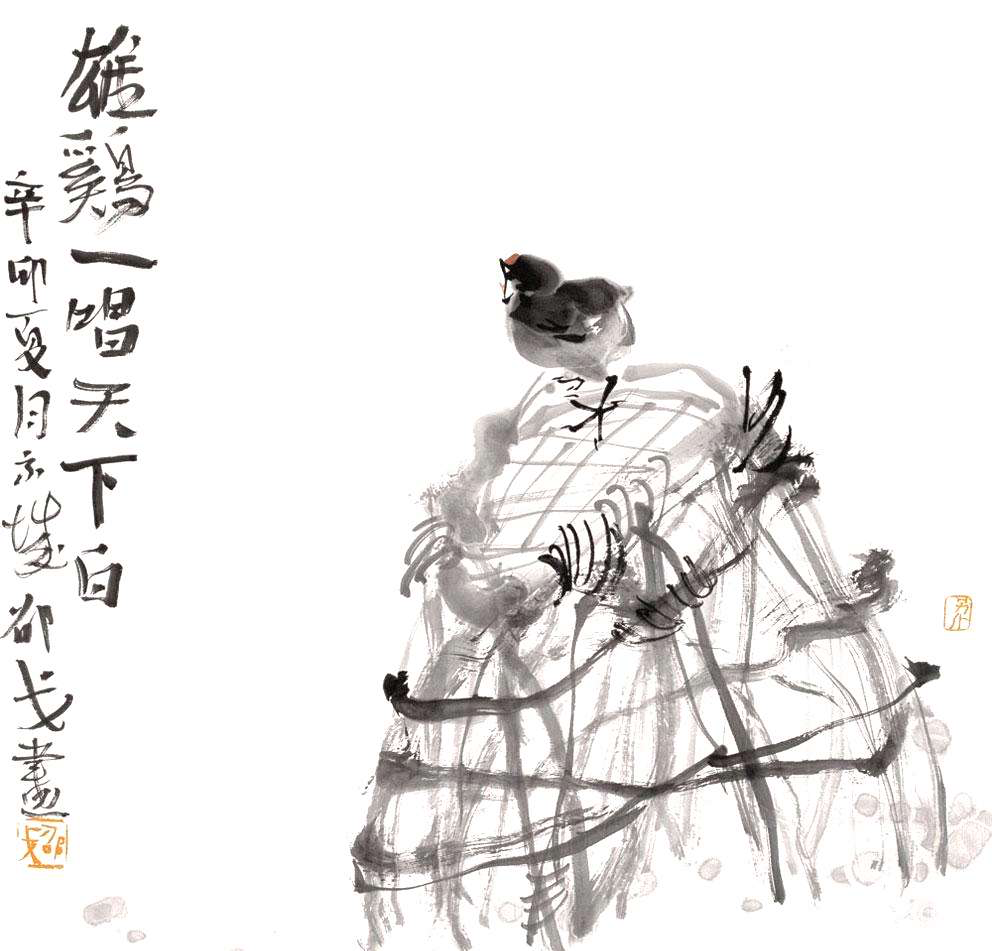 雄鷄一唱天下白
辛卯夏月京城邵戈畫